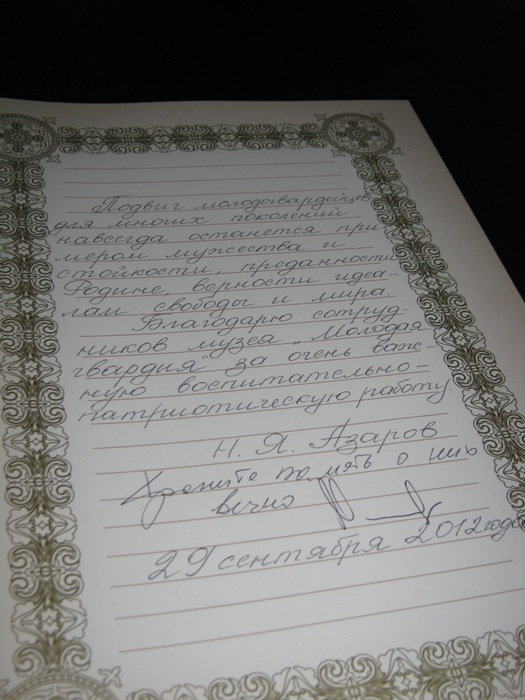 Подвиг молодогвардейцев
для многих поколений
навсегда останется при-
мером мужества и
стойкости, преданности
Родине, верности идеа-
лам свободы и мира.
Благодарю сотруд-
ников музея „Молодая
гвардия" за очень важ-
ную воспитательно-
патриотическую работу.
Н. Я. Азаров
Храните память о них
вечно
29 сентября 2012 года